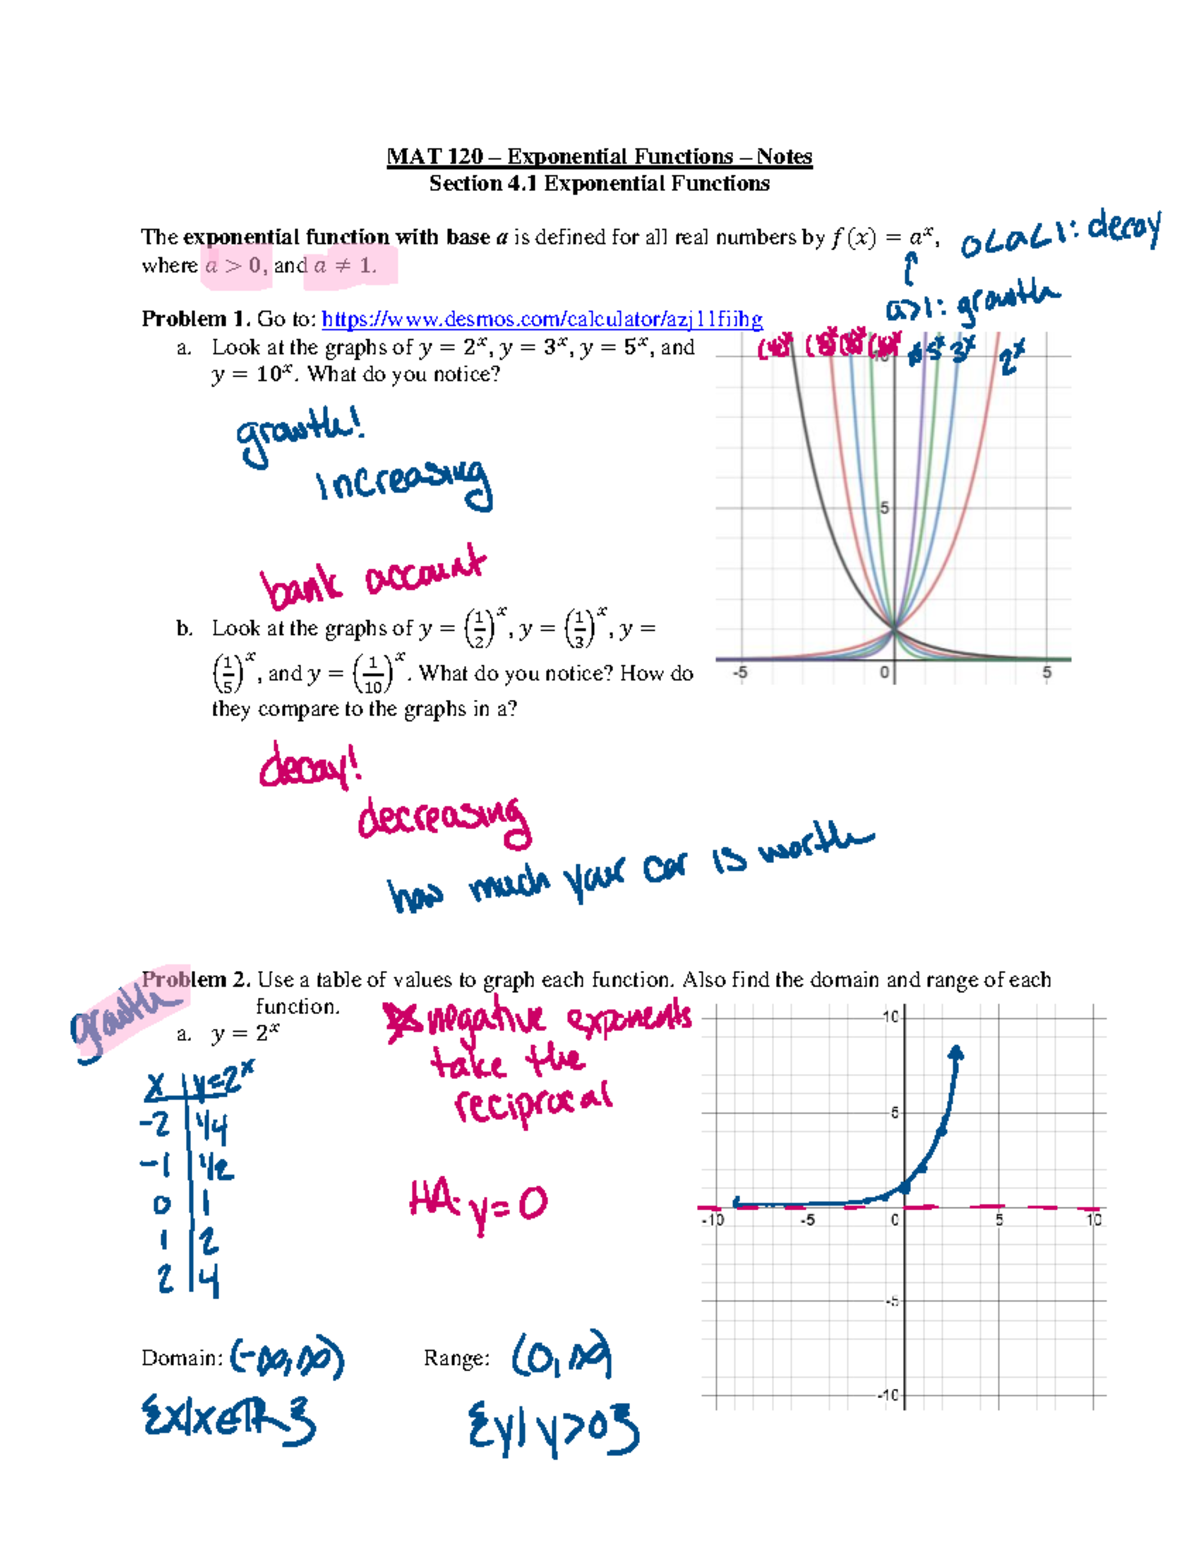 MAT 120 – Exponential Functions – Notes
Section 4.1 Exponential Functions
The exponential function with base a is defined for all real numbers by f(x) = aˣ,
where a > 0, and a ≠ 1.
0<a<1: decay
a>1: growth
Problem 1. Go to: https://www.desmos.com/calculator/azj11fiihg
a. Look at the graphs of y = 2ˣ, y = 3ˣ, y = 5ˣ, and
y = 10ˣ. What do you notice?
growth!
increasing
bank account
5ˣ 3ˣ 2ˣ
10
5
-5 0 5
b. Look at the graphs of y = (1/2)ˣ, y = (1/3)ˣ, y =
(1/5)ˣ, and y = (1/10)ˣ. What do you notice? How do
they compare to the graphs in a?
decay!
decreasing
how much your car is worth
Problem 2. Use a table of values to graph each function. Also find the domain and range of each
function.
growth
a. y = 2ˣ
x | y=2ˣ
-2 | 1/4
-1 | 1/2
0 | 1
1 | 2
2 | 4
negative exponents
take the
reciprocal
HA: y=0
10
5
-10 -5 0 5 10
-5
-10
Domain: (-∞,∞) Range: (0,∞)
{x|x∈ℝ} {y|y>0}